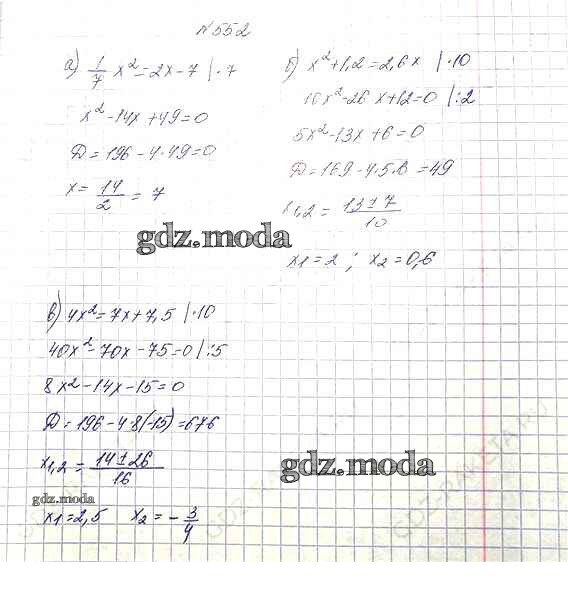 №552
а) 1/7 x² = 2x - 7 | · 7
x² - 14x + 49 = 0
Д = 196 - 4 · 49 = 0
x = 14/2 = 7
б) x² + 1,2 = 2,6x | · 10
10x² - 26x + 12 = 0 | : 2
5x² - 13x + 6 = 0
Д = 169 - 4 · 5 · 6 = 49
x1,2 = (13 ± 7)/10
x1 = 2 ; x2 = 0,6
gdz.moda
в) 4x² = 7x + 7,5 | · 10
40x² - 70x - 75 = 0 | : 5
8x² - 14x - 15 = 0
Д = 196 - 4 · 8(-15) = 676
x1,2 = (14 ± 26)/16
x1 = 2,5 x2 = - 3/4
gdz.moda
gdz.moda
GDZ-RAKETA.RU